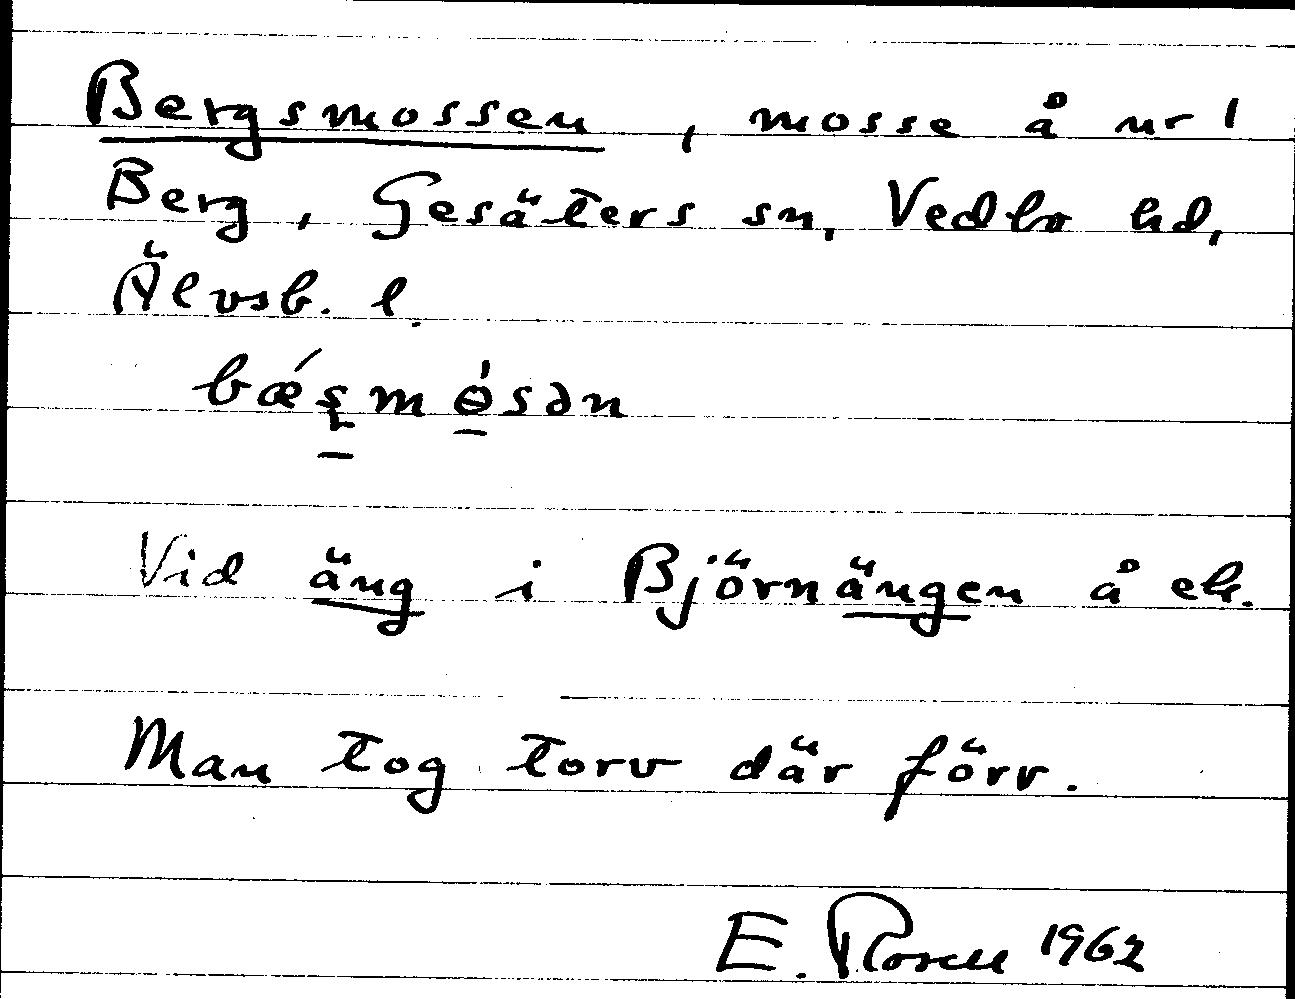 Bergsmossen, mosse å nr 1
Berg, Gesäters sn, Vedbo hd,
Älvsb. l.
bǽʂmɵ́sən
Vid äng i Björnängen å ek.
Man tog torv där förr.
E. Rosell 1962